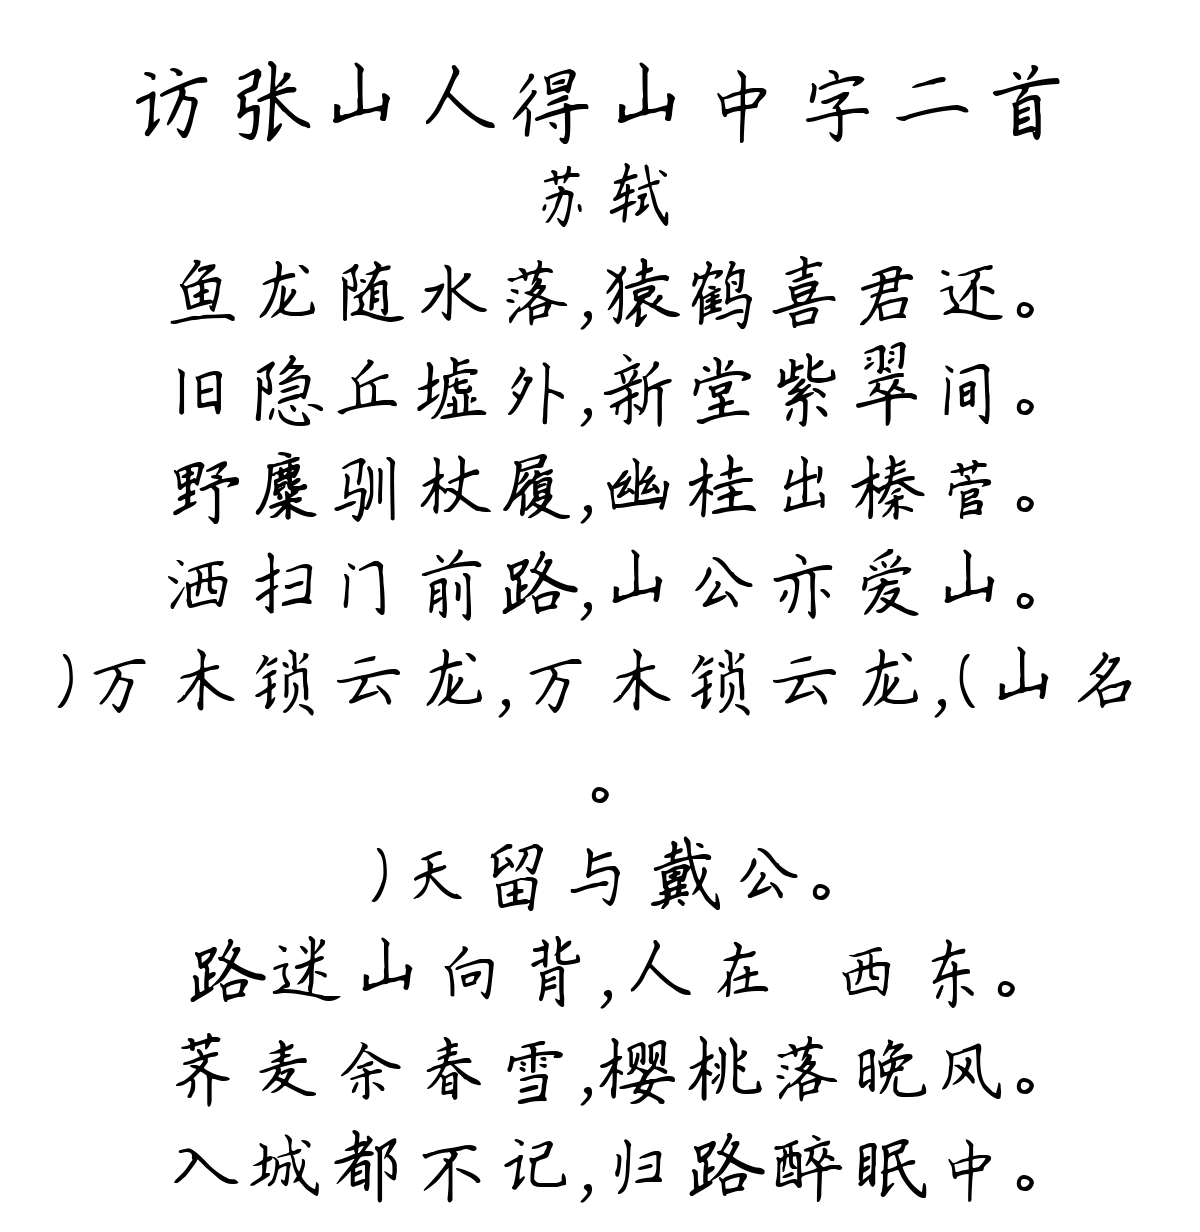 访张山人得山中字二首
苏轼
鱼龙随水落,猿鹤喜君还。
旧隐丘墟外,新堂紫翠间。
野麋驯杖履,幽桂出榛菅。
洒扫门前路,山公亦爱山。
)万木锁云龙,万木锁云龙,(山名
。
)天留与戴公。
路迷山向背,人在 西东。
荞麦余春雪,樱桃落晚风。
入城都不记,归路醉眠中。